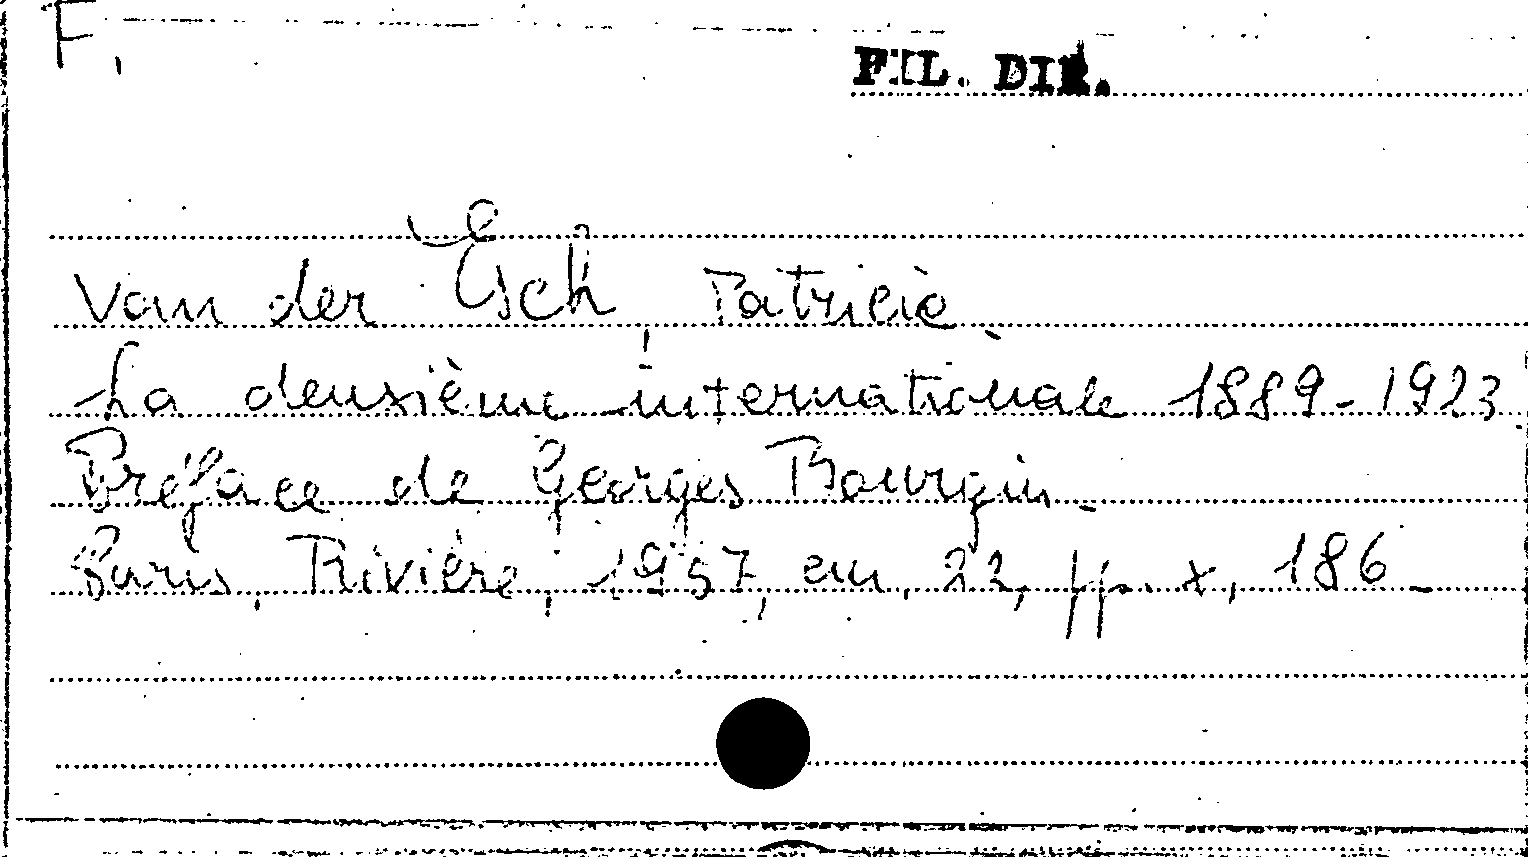 F.
FIL. DIR.
Van der Esch, Patricia.
La deuxième internationale 1889-1923.
Préface de Georges Bourgin.
Paris, Rivière, 1957, cm. 22, pp. x, 186.